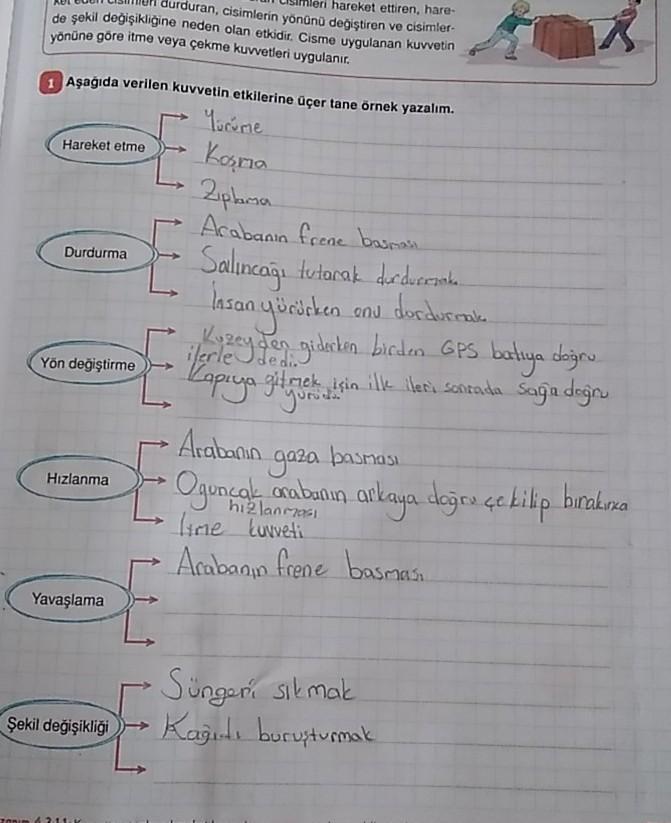 durduran, cisimlerin yönünü değiştiren ve cisimler-
hareket ettiren, hare-
de şekil değişikliğine neden olan etkidir. Cisme uygulanan kuvvetin
yönüne göre itme veya çekme kuvvetleri uygulanır.
1 Aşağıda verilen kuvvetin etkilerine üçer tane örnek yazalım.
Hareket etme
Yürüme
Koşma
Zıplama
Durdurma
Arabanın frene basması
Salıncağı tutarak durdurmak
İnsan yürürken onu dordurmak
Yön değiştirme
Kuzeyden giderken birden GPS batıya doğru
ilerle dedi.
Kapıya gitmek için ilk ileri sonrada sağa doğru
yürüdü
Hızlanma
Arabanın gaza basması
Oyuncak arabanın arkaya doğru çekilip bırakınca
hızlanması
İtme kuvveti
Yavaşlama
Arabanın frene basması
Şekil değişikliği
Süngeri sıkmak
Kağıdı buruşturmak